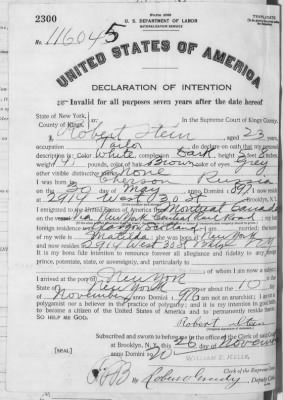 2300
U. S. DEPARTMENT OF LABOR
NATURALIZATION SERVICE
No. 116045
UNITED STATES OF AMERICA
DECLARATION OF INTENTION
Invalid for all purposes seven years after the date hereof
State of New York,
County of Kings,
In the Supreme Court of Kings County.
I, Robert Stein, aged 23 years,
occupation Tailor, do declare on oath that my personal
description is: Color White, complexion Dark, height 5 feet inches,
weight pounds, color of hair Brown, color of eyes Grey
other visible distinctive marks None
I was born in Cherson Russia
on the day of May, anno Domini 1897; I now reside
at 2914 West 30 St Brooklyn, N.Y.
I emigrated to the United States of America from Montreal Canada
on the via New York Central Road; my last
foreign residence was I am married; the name
of my wife is Matilda; she was born in New York
and now resides at 2914 West
It is my bona fide intention to renounce forever all allegiance and fidelity to any foreign
prince, potentate, state, or sovereignty, and particularly to
of whom I am now a subject.
I arrived at the port of New York, in the
State of New York, on or about the 10 day
of November, anno Domini; I am not an anarchist; I am not a
polygamist nor a believer in the practice of polygamy; and it is my intention in good faith
to become a citizen of the United States of America and to permanently reside therein:
SO HELP ME GOD.
Robert Stein
Subscribed and sworn to before me in the office of the Clerk of said Court
at Brooklyn, N. Y., this 20 day of November
anno Domini 1920
[SEAL]
WILLIAM E. KELLY,
Clerk of the Supreme Court.
By Deputy Clerk